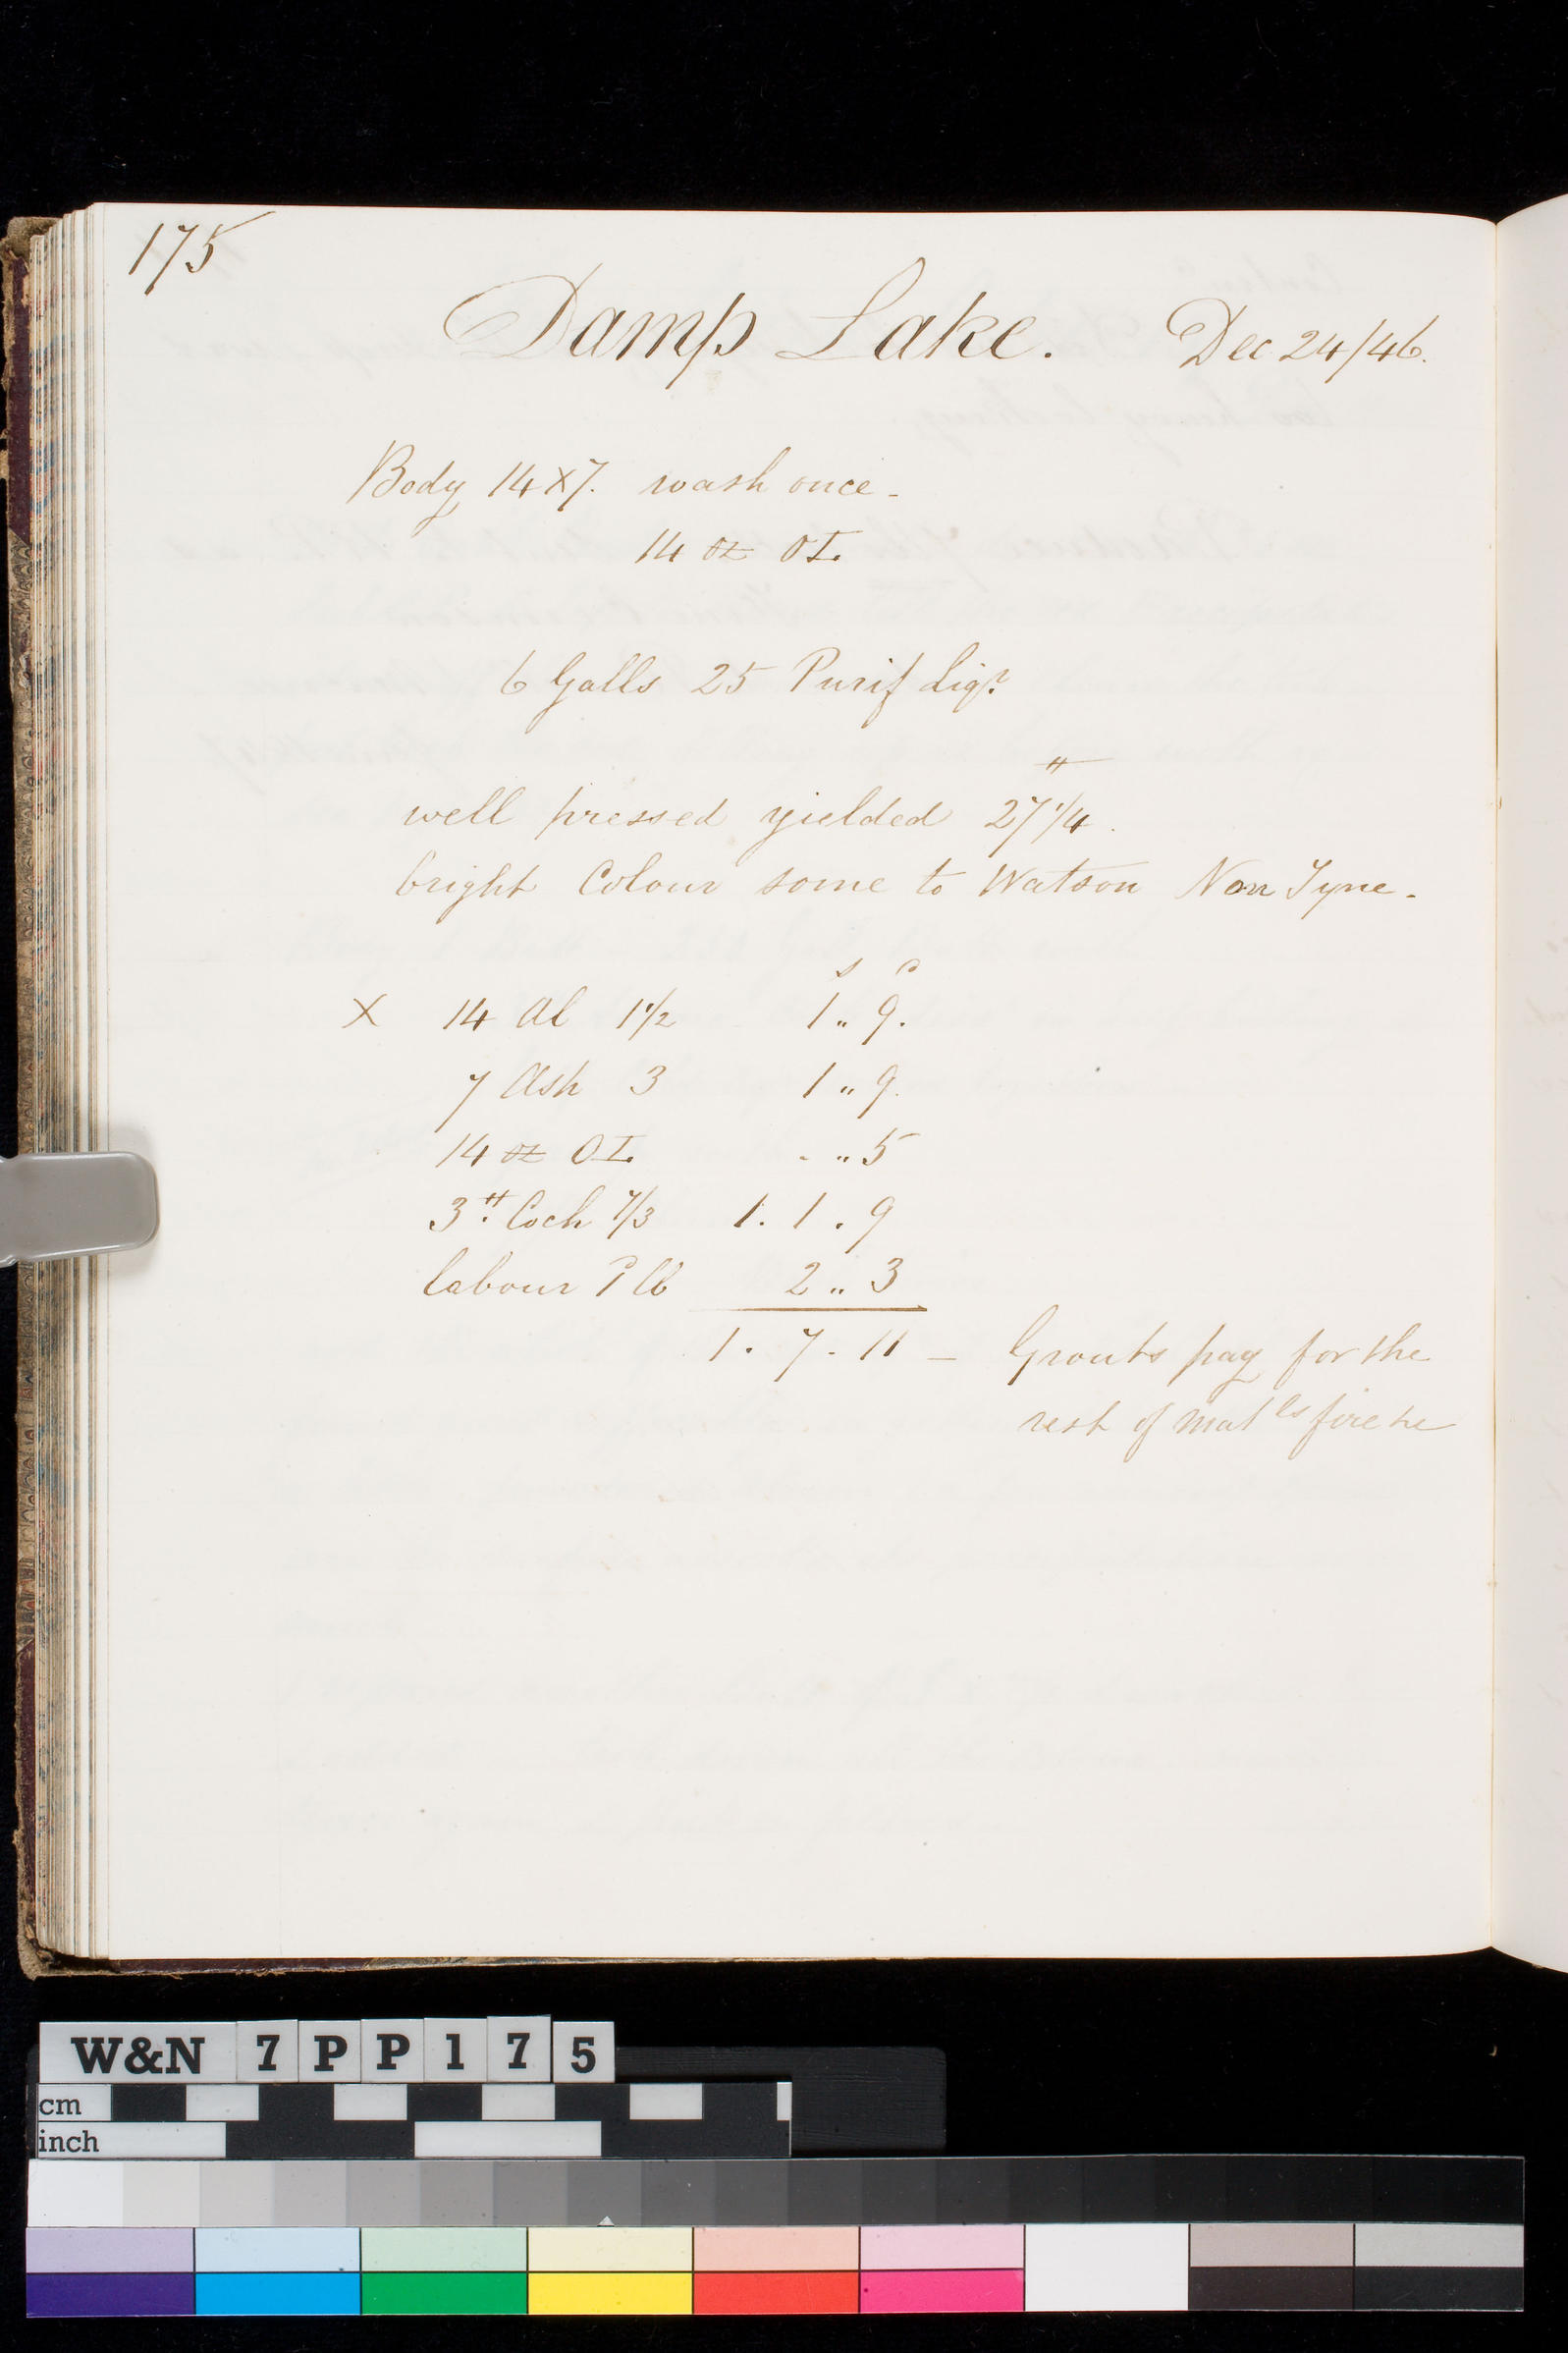 175
Damp Lake. Dec 24/46.
Body 14 x 7. wash once -
14 oz OI.
6 Galls 25 Purif Liqr
#
well pressed yielded 27 1/4.
bright Colour some to Watson Non Tyne.
s d
X 14 Al 1 1/2 1 " 9.
7 Ash 3 1 " 9.
14 oz OI. - " 5
3 # Coch 7/3 1. 1. 9
labour 1 lb 2 " 3
1. 7. 11 — Grouts pay for the
rest of matls fire &c
W&N 7PP175
cm
inch